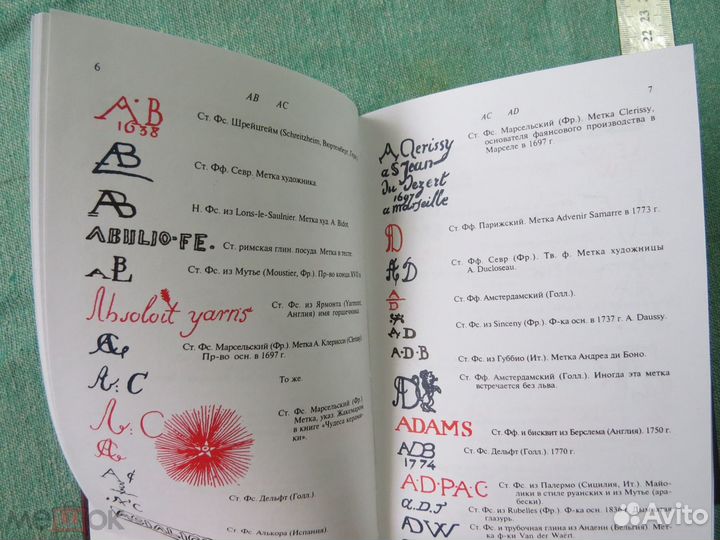 6
AB AC
A·B
1638
Ст. Фс. Шрейцгейм (Schreitzheim, Вюртемберг,
AB
Ст. Фф. Севр. Метка художника.
AB
Н. Фс. из Lons-le-Saulnier. Метка худ. A. Bidot.
ABULIO·FE.
Ст. римская глин. посуда. Метка в тесте.
AB
Ст. Фс. из Мутье (Moustier, Фр.). Пр-во конца XVII в.
Absoloit yarns
Ст. Фс. из Ярмонта (Yarmont,
Англия) имя горшечника.
Ст. Фс. Марсельский (Фр.). Метка А. Клерисси
Пр-во осн. в 1697 г.
A: C
То же.
A: C
Ст. Фс. Марсельский (Фр.)
Метка, указ. Жакемаром
в книге «Чудеса керами-
ки».
Ст. Фс. Дельфт (Голл.)
Ст. Фс. Алькора (Испания).
7
AC AD
A Clerissy
a St Jean
du Dezert
1697
a marseille
Ст. Фс. Марсельский (Фр.). Метка Clerissy,
основателя фаянсового производства в
Марселе в 1697 г.
AD
Ст. Фф. Парижский. Метка Advenir Samarre в 1773 г.
AD
Ст. Фф. Севр (Фр.). Тв. ф. Метка художницы
A. Ducloseau.
Ст. Фф. Амстердамский (Голл.).
AD
Ст. Фс. из Sinceny (Фр.). Ф-ка осн. в 1737 г. A. Daussy.
A·D·B
Ст. Фс. из Губбио (Ит.). Метка Андреа ди Боно.
AD
Ст. Фф. Амстердамский (Голл.). Иногда эта метка
встречается без льва.
ADAMS
Ст. Фф. и бисквит из Берслема (Англия). 1750 г.
ADB
1774
Ст. Фс. Дельфт (Голл.). 1770 г.
A·D·PA·C
Ст. Фс. из Палермо (Сицилия, Ит.). Майо-
лики в стиле руанских и из Мутье (ара-
бески).
a.D.T
Ст. Фс. из Rubelles (Фр.). Ф-ка осн.
глазурь.
ADW
Ст. Фс. и трубочная глина из Анденн (Бельгия). Метка
ф-ки Van der Waert.
22 23
Avito